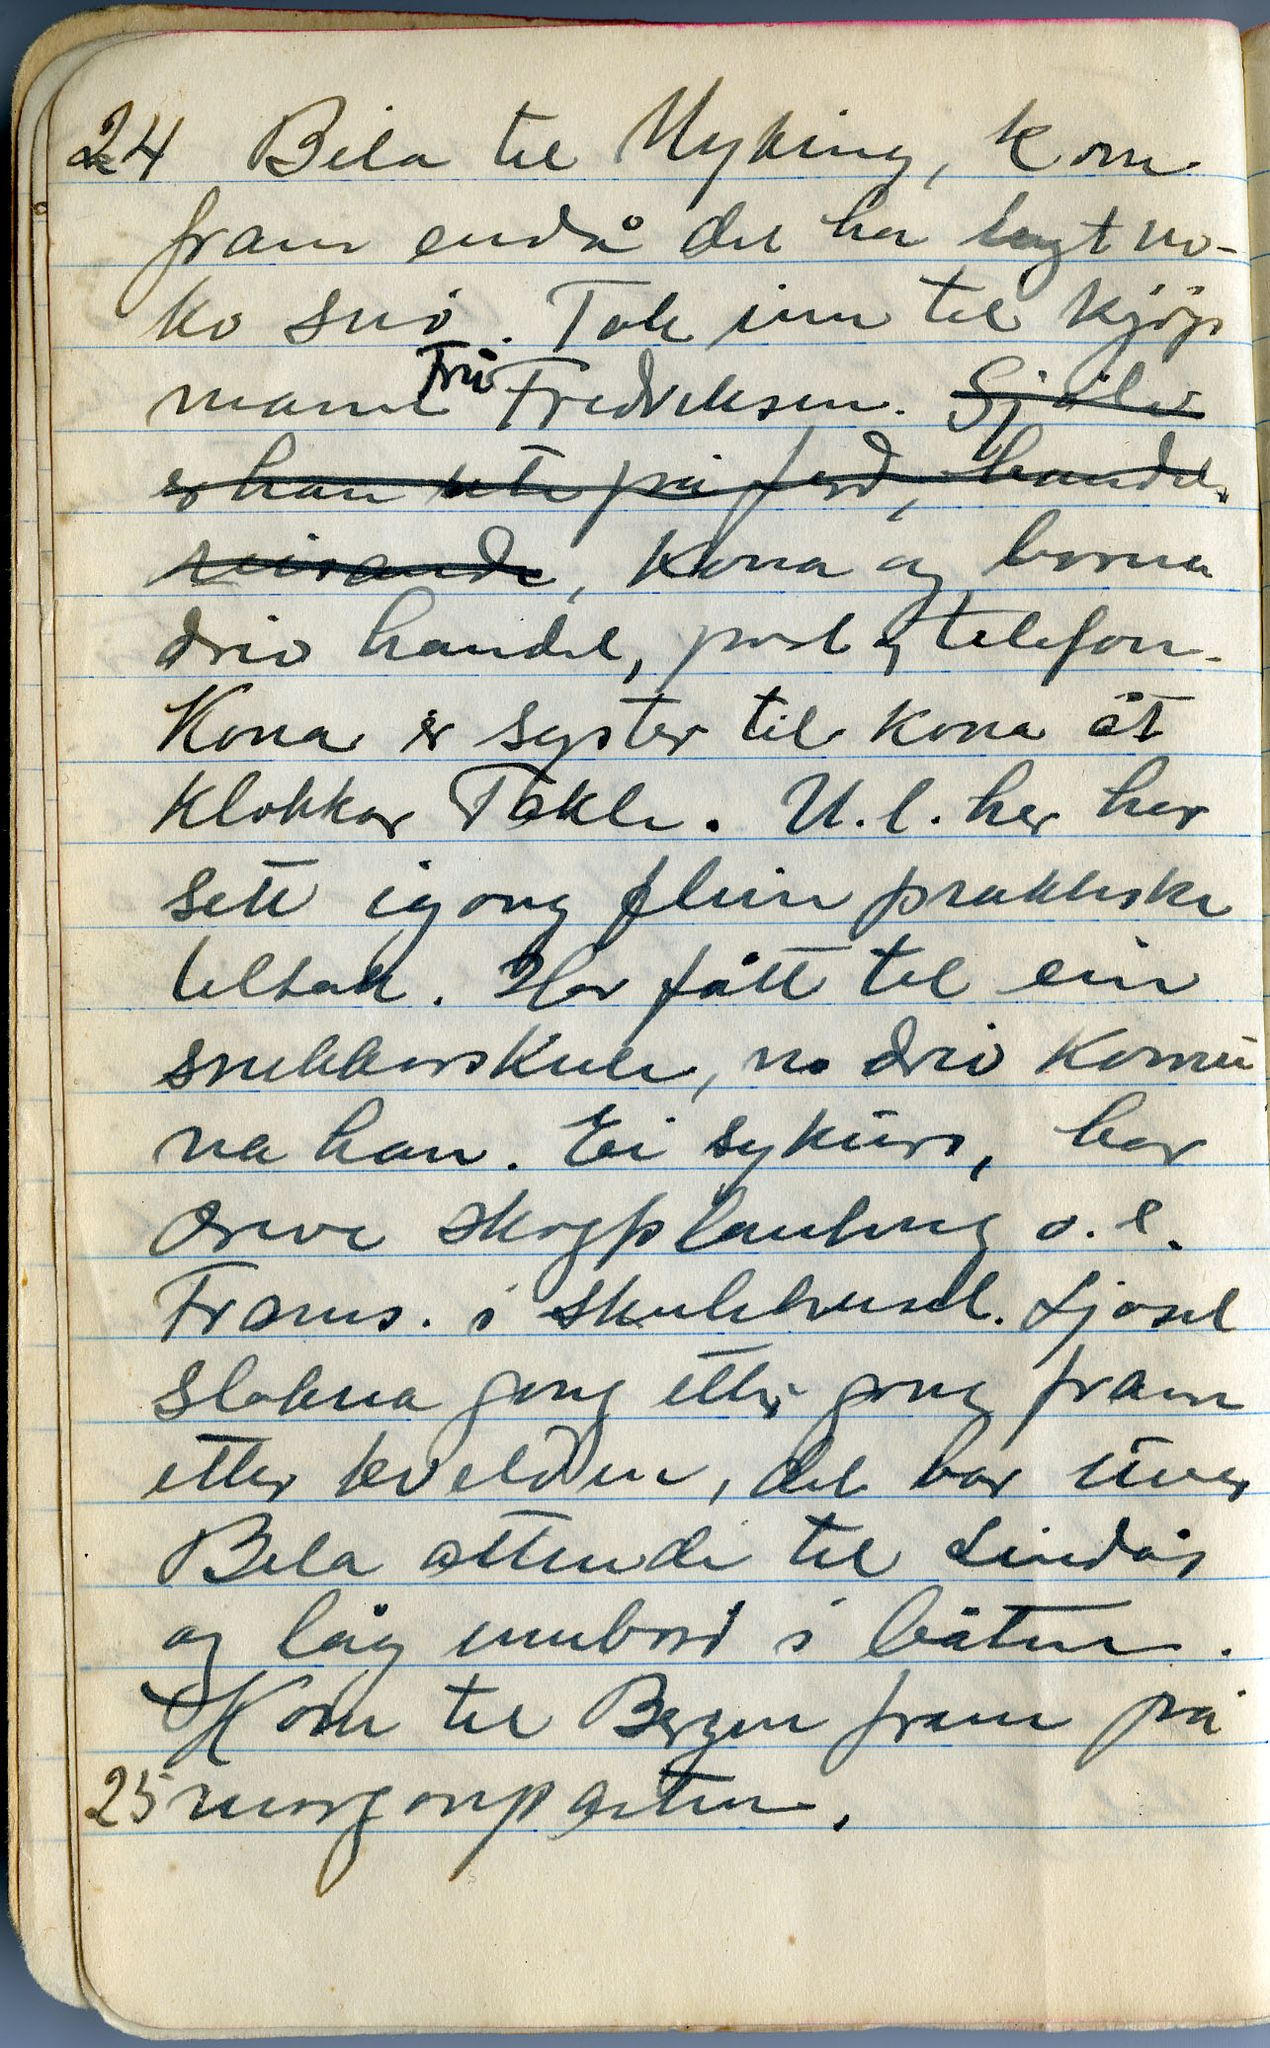 24 Bila til Myking, kom
fram endå det ha lagt no-
ko snö. Tok inn til kjöp
mann Frü Fredriksen. Sjölv
er han ute på ferd, handels
reisande, Kona og borna
driv handel, post og telefon.
Kona er syster til kona åt
klokkar Takle. U.l. her har
sett igong fleire praktiske
tiltak. Har fått til ein
snikkarskule, no driv komü
na han. Ei sykürs, har
drive skogplanting o.l.
Frams. i skulehuset. Ljoset
slokna gong etter gong fram
etter kvelden, det bar üver
Bila attende til Lindås
og låg innbord i båten.
Kom til Bergen fram på
25 morgonparten.